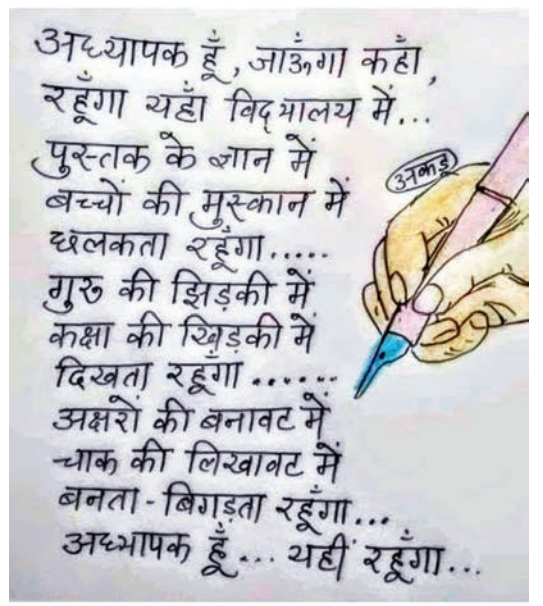 अध्यापक हूँ, जाऊँगा कहाँ,
रहूँगा यहाँ विद्यालय में...
पुस्तक के ज्ञान में
बच्चों की मुस्कान में
छलकता रहूँगा.....
गुरु की झिड़की में
कक्षा की खिड़की में
दिखता रहूँगा ......
अक्षरों की बनावट में
चाक की लिखावट में
बनता-बिगड़ता रहूँगा...
अध्यापक हूँ... यहीं रहूँगा...